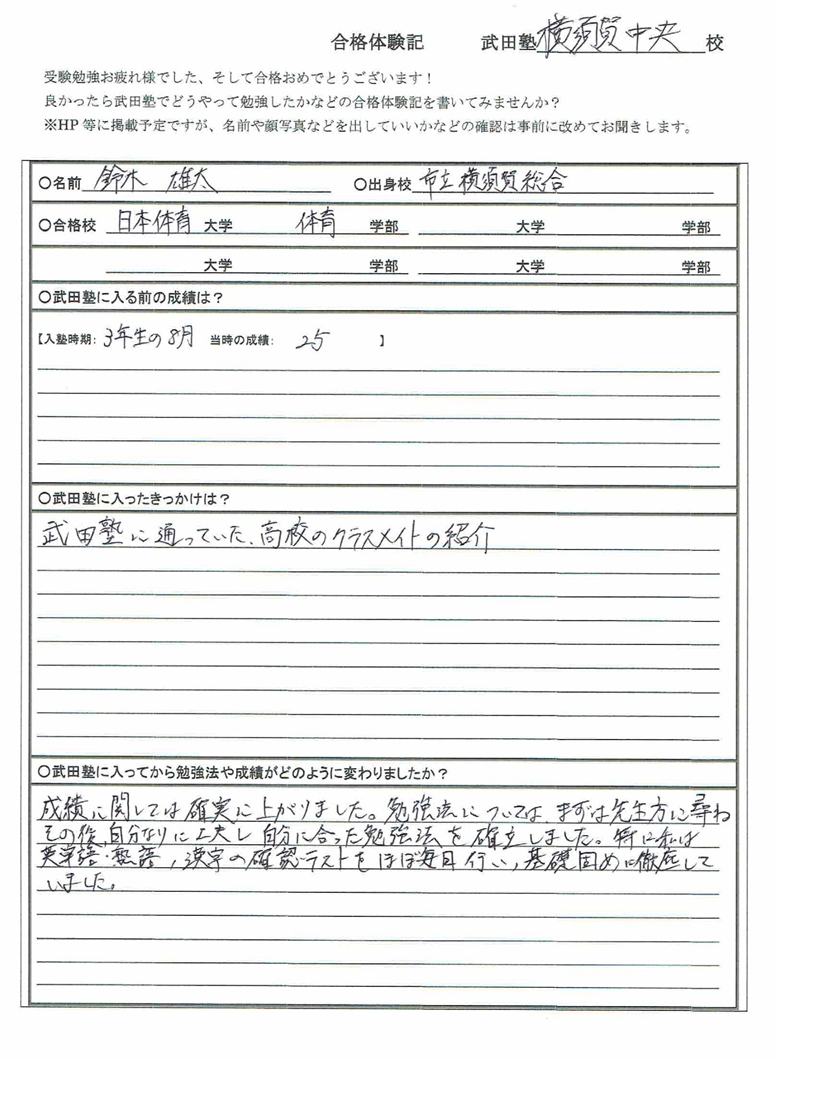 合格体験記 武田塾 横須賀中央 校
受験勉強お疲れ様でした、そして合格おめでとうございます！
良かったら武田塾でどうやって勉強したかなどの合格体験記を書いてみませんか？
※HP 等に掲載予定ですが、名前や顔写真などを出していいかなどの確認は事前に改めてお聞きします。
○名前 鈴木 雄太 ○出身校 市立横須賀総合
○合格校 日本体育 大学 体育 学部 大学 学部
大学 学部 大学 学部
○武田塾に入る前の成績は？
【入塾時期： 3年生の8月 当時の成績： 25 】
○武田塾に入ったきっかけは？
武田塾に通っていた、高校のクラスメイトの紹介
○武田塾に入ってから勉強法や成績がどのように変わりましたか？
成績に関しては確実に上がりました。勉強法については、まずは先生方に尋ね
その後、自分なりに工夫し自分に合った勉強法を確立しました。特に私は
英単語・熟語，漢字の確認テストをほぼ毎日行い，基礎固めに徹底して
いました。